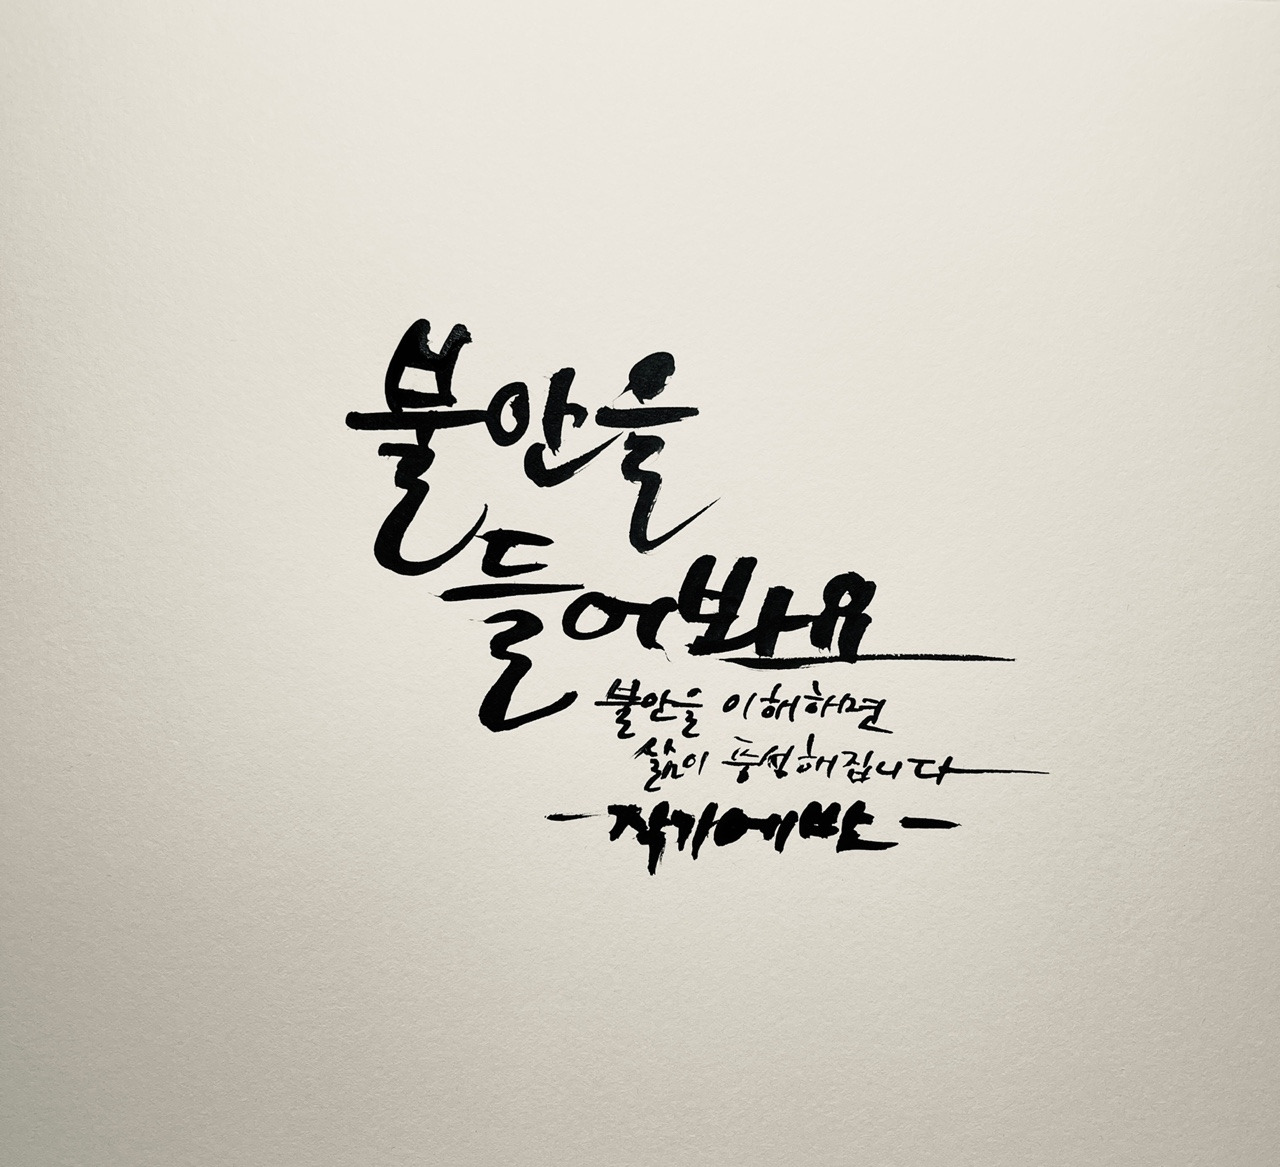 불안을
들어봐요
불안을 이해하면
삶이 풍성해집니다
-작가에반-